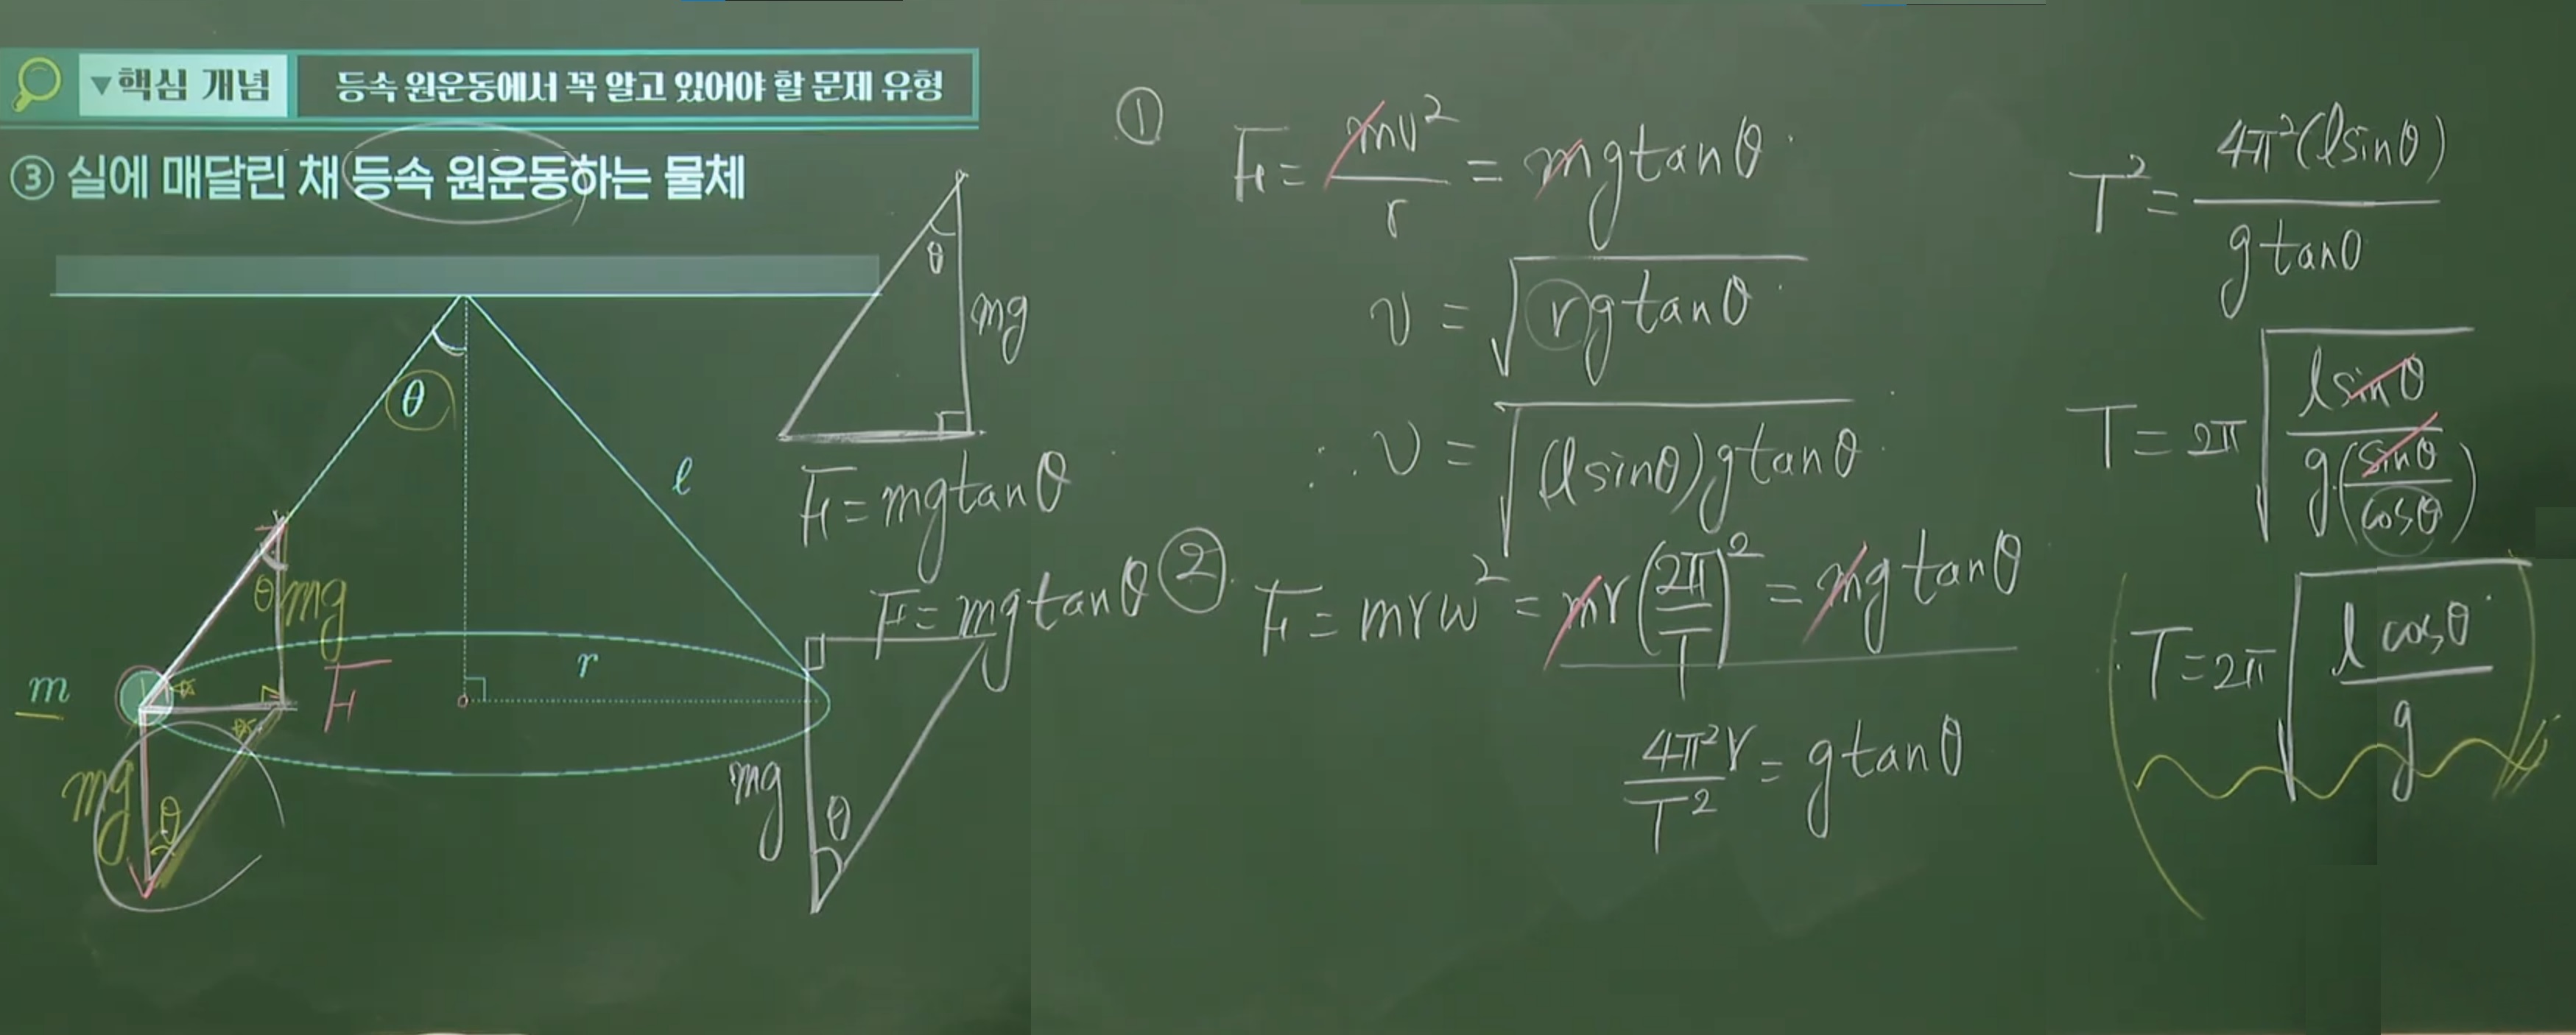 ▼핵심 개념
등속 원운동에서 꼭 알고 있어야 할 문제 유형
③ 실에 매달린 채 등속 원운동하는 물체
θ
ℓ
r
m
θ
mg
F
mg
θ
θ
mg
F = mg tanθ
F = mg tanθ
mg
θ
①
F = mv²/r = mg tanθ
v = √(rg tanθ)
∴ v = √((ℓsinθ)g tanθ)
②
F = mrω² = mr(2π/T)² = mg tanθ
4π²r/T² = g tanθ
T² = 4π²(ℓsinθ)/(g tanθ)
T = 2π√(ℓsinθ/(g(sinθ/cosθ)))
∴ T = 2π√(ℓcosθ/g)